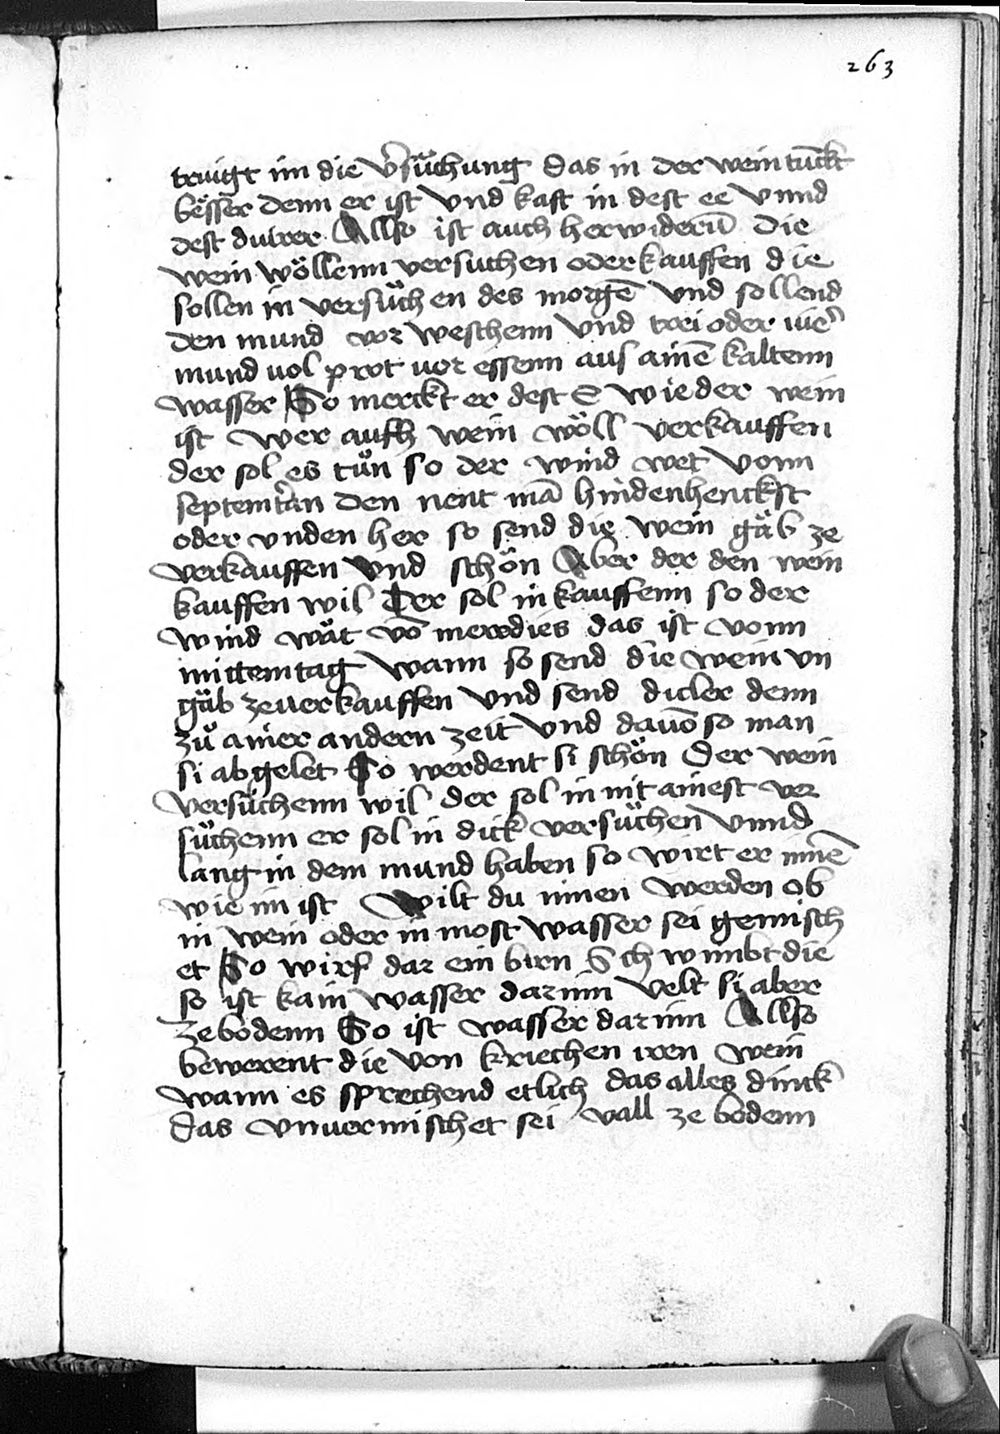 263
truigt im die v̾sůchung das in der wein tunckt
besser denn er ist vnd kaft in dest ee vnnd
dest durer Allso ist auch herwiderū die
wein wöllenn versuchen oder kauffen die
sollen in versůchen des morgē vnd sollend
den mund vor weschenn vnd trei oder vie᷑
mund vol prot vor essenn aus ainē kaltenn
wasser So merckt er dest E wie der wein
ist wer auch wein wöll verkauffen
der sol es tůn so der wind wet vonn
septemt᷑an den nent mā hindenhenckst
oder vnden her so send die wein gäb ze
verkauffen vnd schön Aber der den wein
kauffen wil Der sol in kauffenn so der
wind wät vō meredies das ist vonn
mittemtag wann so send die wein vn
gäb ze verkauffen vnd send dicler denn
zů ainer andern zeit vnd dauō so man
si abgelet So werdent si schön Der wein
versůchenn wil der sol in nit ainest ver
sůchenn er sol in dick versůchen vnnd
lang in dem mund haben so wirt er innē
wie im ist Wilt du innen werden ob
in wein oder in most wasser sei gemisch
et So wirf dar ein birn Schwimbt die
so ist kain wasser darinn velt si aber
ze bodenn So ist wasser darinn Allso
bewerent die von kriechen iren wein
wann es sprechend etlich das alles dinck
das vnuermischet sei vall ze bodenn